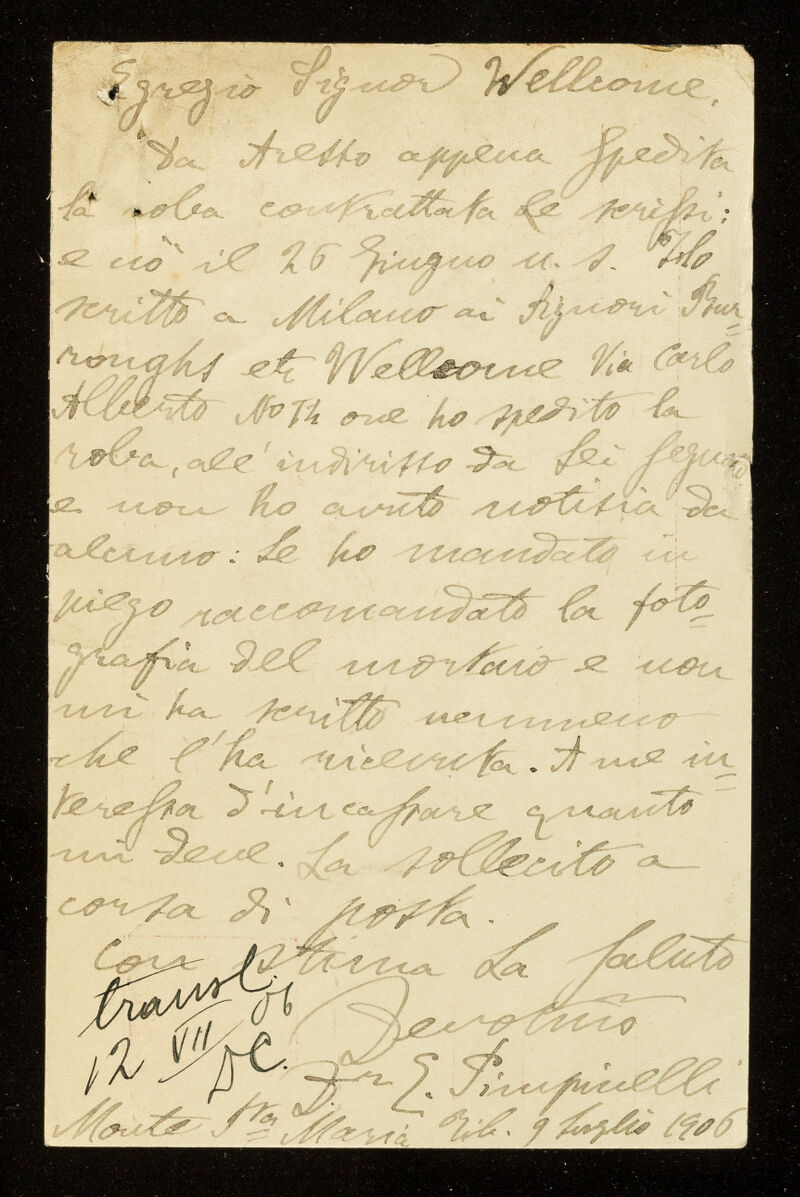 Egregio Signor Wellcome,
Da Aresso appena spedita
la roba contrattata Le scrissi:
e ciò il 26 Giugno u. s. Ho
scritto a Milano ai Signori Bur=
roughs et Wellcome Via Carlo
Alberto ove ho spedito la
roba, all'indirisso da Lei segnato
e non ho avuto notisia da
alcuno: Le ho mandato in
piego raccomandato la foto=
grafia del mortaio e non
mi ha scritto nemmeno
che l'ha ricevuta. A me in=
teressa d'incassare quanto
mi deve. La sollecito a
corsa di posta.
Con stima La saluto
transl.
12 VII 06
DC.
Devotmo
Dr E. Pimpinelli
Monte Sta Maria Tib. 9 Luglio 1906